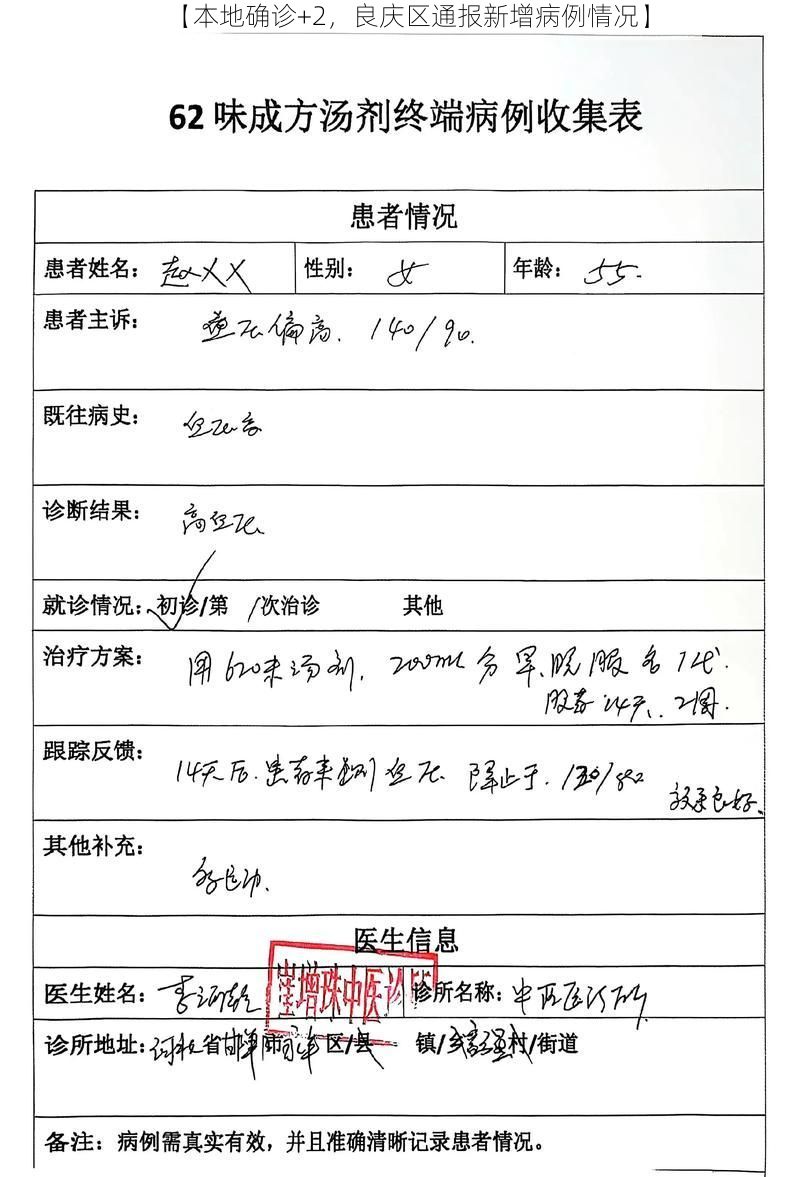 【本地确诊+2，良庆区通报新增病例情况】
62 味成方汤剂终端病例收集表
患者情况
患者姓名：赵XX 性别：女 年龄：55.
患者主诉：血压偏高. 140/90.
既往病史：血压高
诊断结果：高血压
就诊情况：初诊/第 /次治诊 其他
治疗方案：用620味汤剂, 200ml 分早、晚服各1代.
服药14天、2周.
跟踪反馈：14天后.患者来测血压 降止于.
效果良好、
其他补充：
医生信息
医生姓名：李 崔增珠中医诊所 诊所名称：中医诊所
诊所地址：河北省邯郸市 区/县 镇/乡 村/街道
备注：病例需真实有效，并且准确清晰记录患者情况。